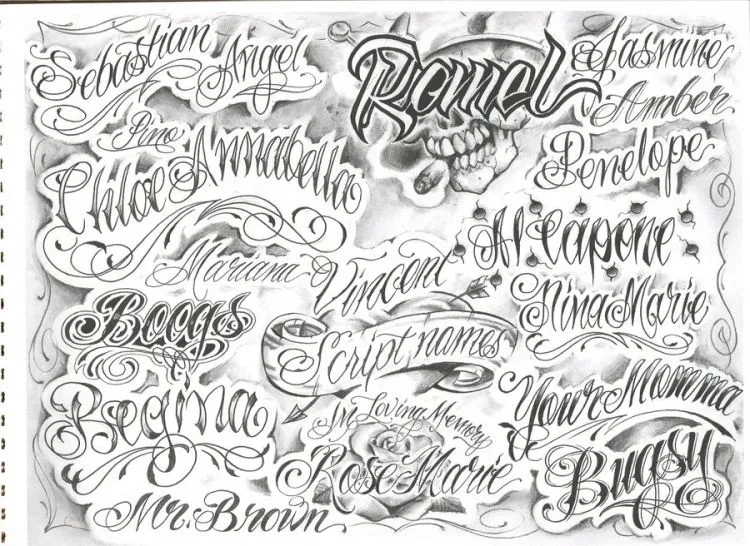 Sebastian
Angel
Ramel
Jasmine
Amber
Pino
Chloe
Annabella
Penelope
Al Capone
Mariana
Vincent
Nina Marie
Boogs
Script names
Regina
In Loving Memory
Rose Marie
Your Momma
Bugsy
Mr. Brown